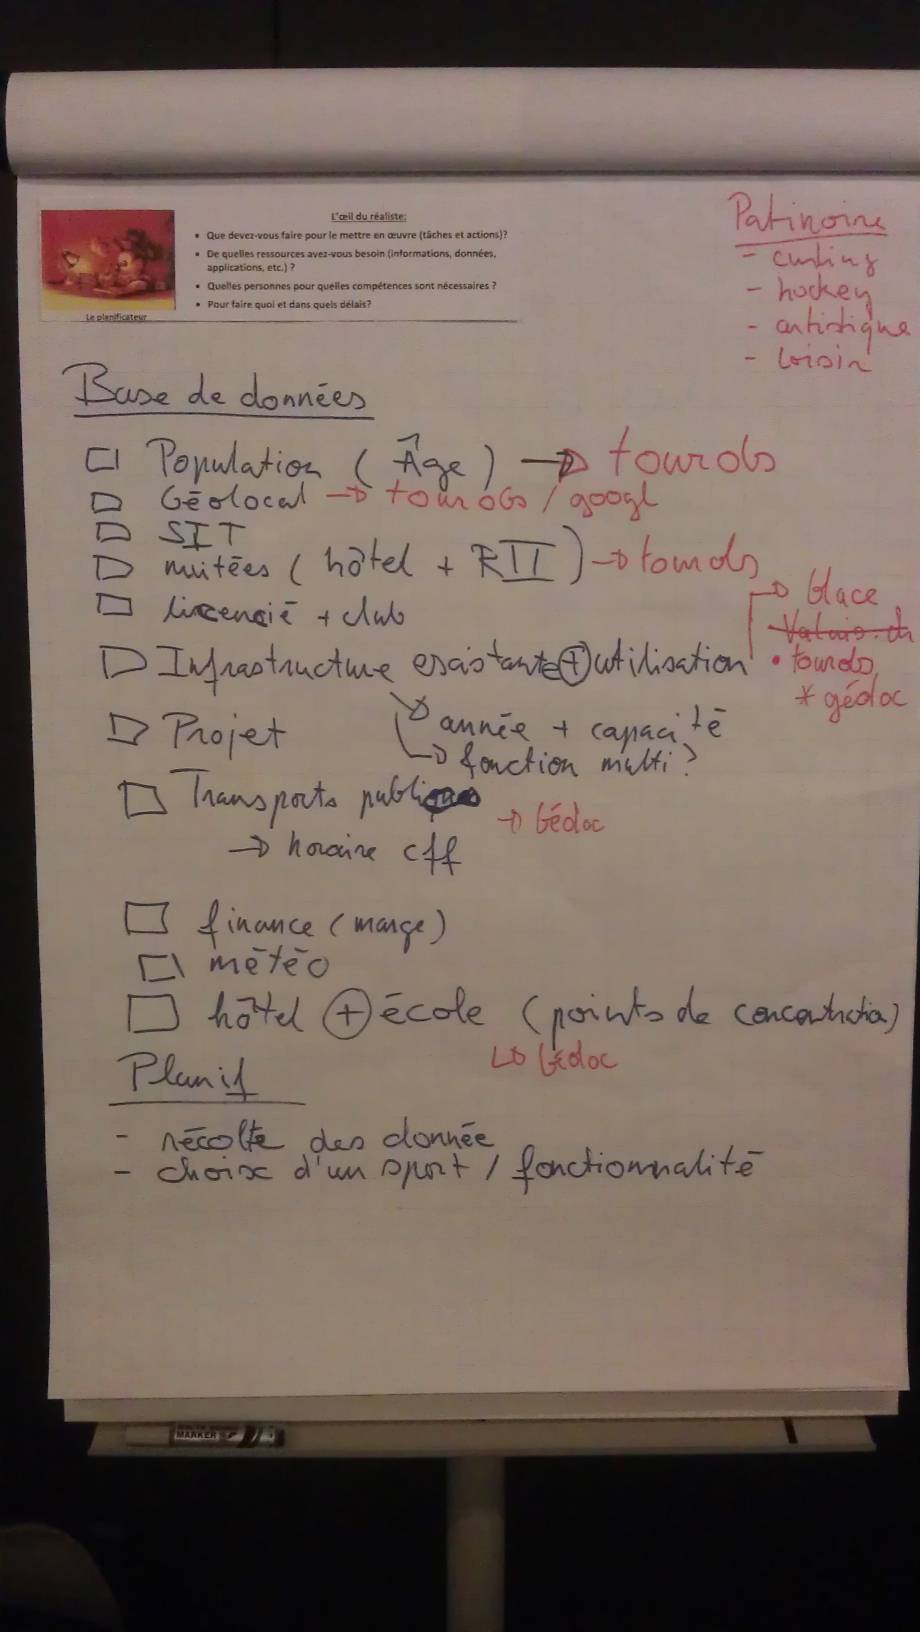 L'œil du réaliste:
• Que devez-vous faire pour le mettre en œuvre (tâches et actions)?
• De quelles ressources avez-vous besoin (informations, données,
applications, etc.) ?
• Quelles personnes pour quelles compétences sont nécessaires ?
• Pour faire quoi et dans quels délais?
Le planificateur
Patinoire
- curling
- hockey
- artistique
- loisir
Base de données
Population (Âge) → tourobs
Géolocal → tourobs / googl
SIT
nuitées (hôtel + RII) → tourobs
licencié + club
Infrastructure existante + utilisation
→ Glace
Valais.ch
• tourobs
* gédoc
→ année + capacité
→ fonction multi?
Projet
Transports publiques
→ Gédoc
→ horaire cff
finance (marge)
météo
hôtel + école (points de concentration)
→ Gédoc
Planif
- récolte des donnée
- choix d'un sport / fonctionnalité
MARKER